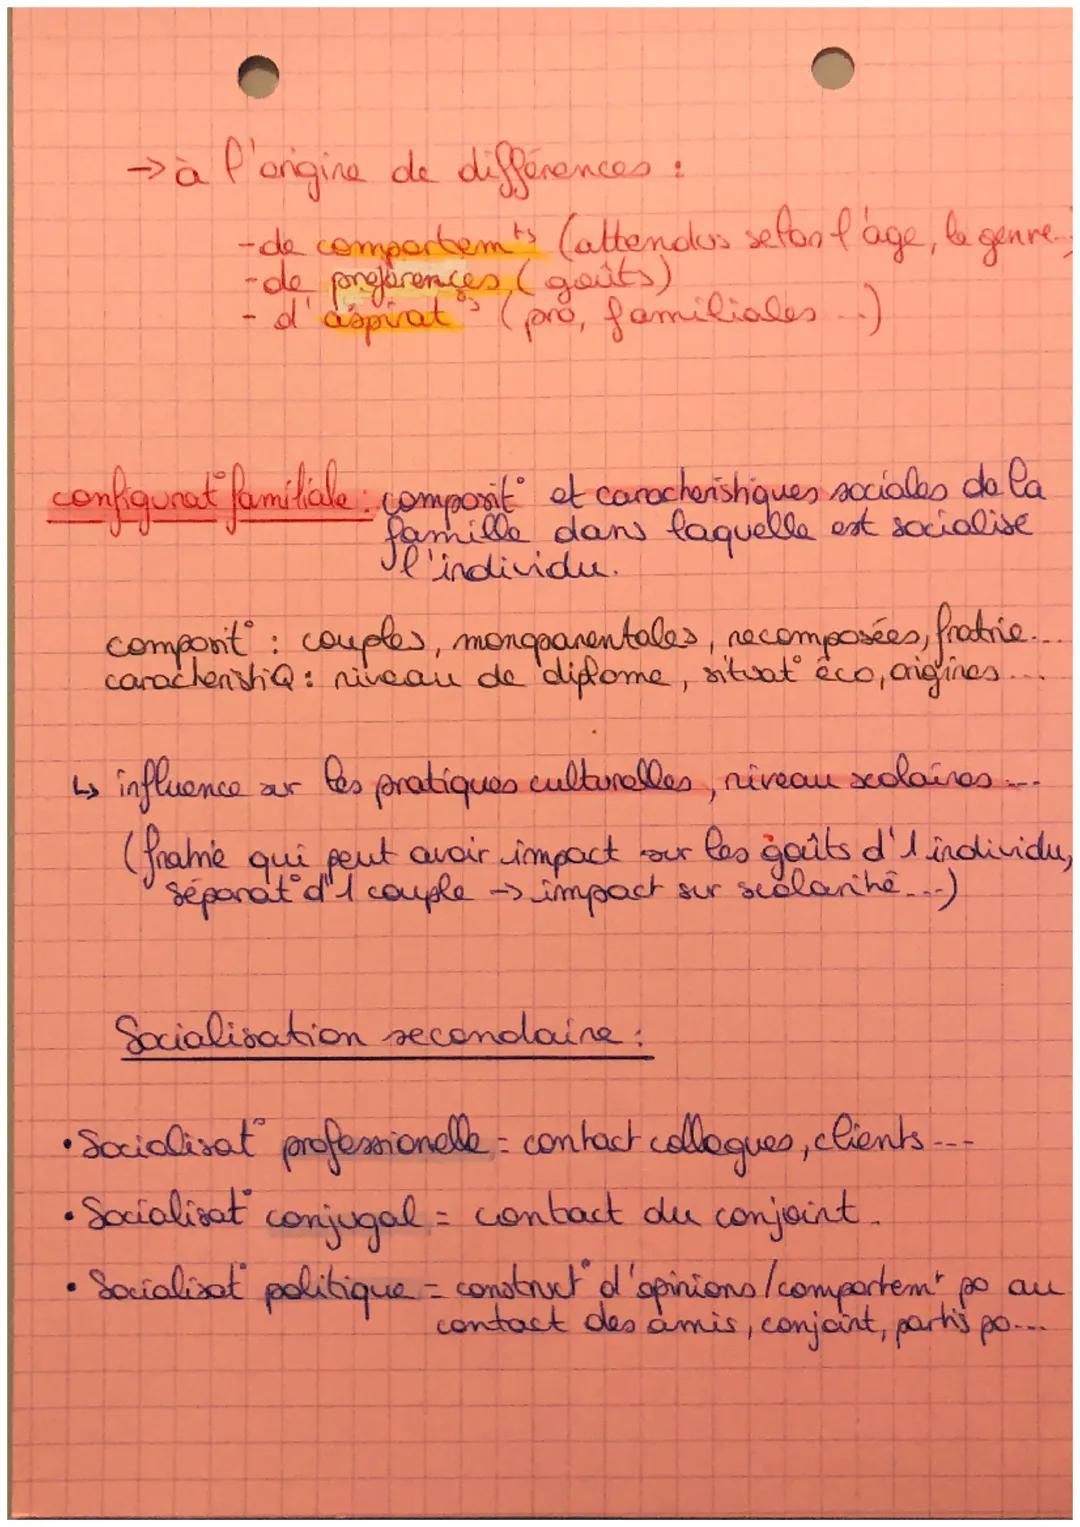 → à l'origine de différences :
-de comportemts (attendus selon l'âge, le genre...)
-de préférences (goûts)
- d'aspirat°s (pro, familiales...)
configurat° familiale : composit° et caractéristiques sociales de la
famille dans laquelle est socialisé
l'individu.
composit° : couples, monoparentales, recomposées, fratrie...
caractéristiQ : niveau de diplome, situat° éco, origines...
↳ influence sur les pratiques culturelles, niveau scolaires...
(fratrie qui peut avoir impact sur les goûts d'1 individu,
séparat° d'1 couple → impact sur scolarité...)
Socialisation secondaire :
• Socialisat° professionelle = contact collegues, clients...
• Socialisat° conjugal = contact du conjoint.
• Socialisat° politique = construct° d'opinions/comportemt po au
contact des amis, conjoint, partis po...